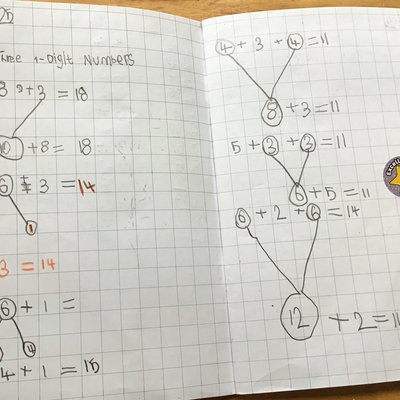 Three 1-Digit Numbers
+3 = 18
10 +8= 18
6 + 3 = 14
1
3 = 14
6 + 1 =
4
4 + 1 = 15
4 + 3 + 4 = 11
8 + 3 = 11
5 + 3 + 3 = 11
6 + 5 = 11
6 + 2 + 6 = 14
12 + 2 = 1